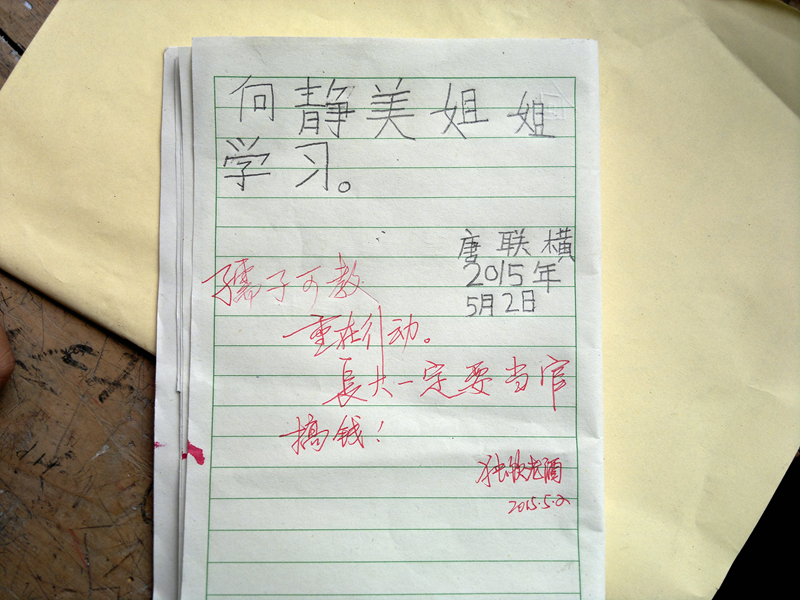 何静美姐姐
学习。
唐联横
2015年
5月2日
孺子可教
重在行动。
長大一定要当官
搞钱！
独饮老酒
2015.5.2